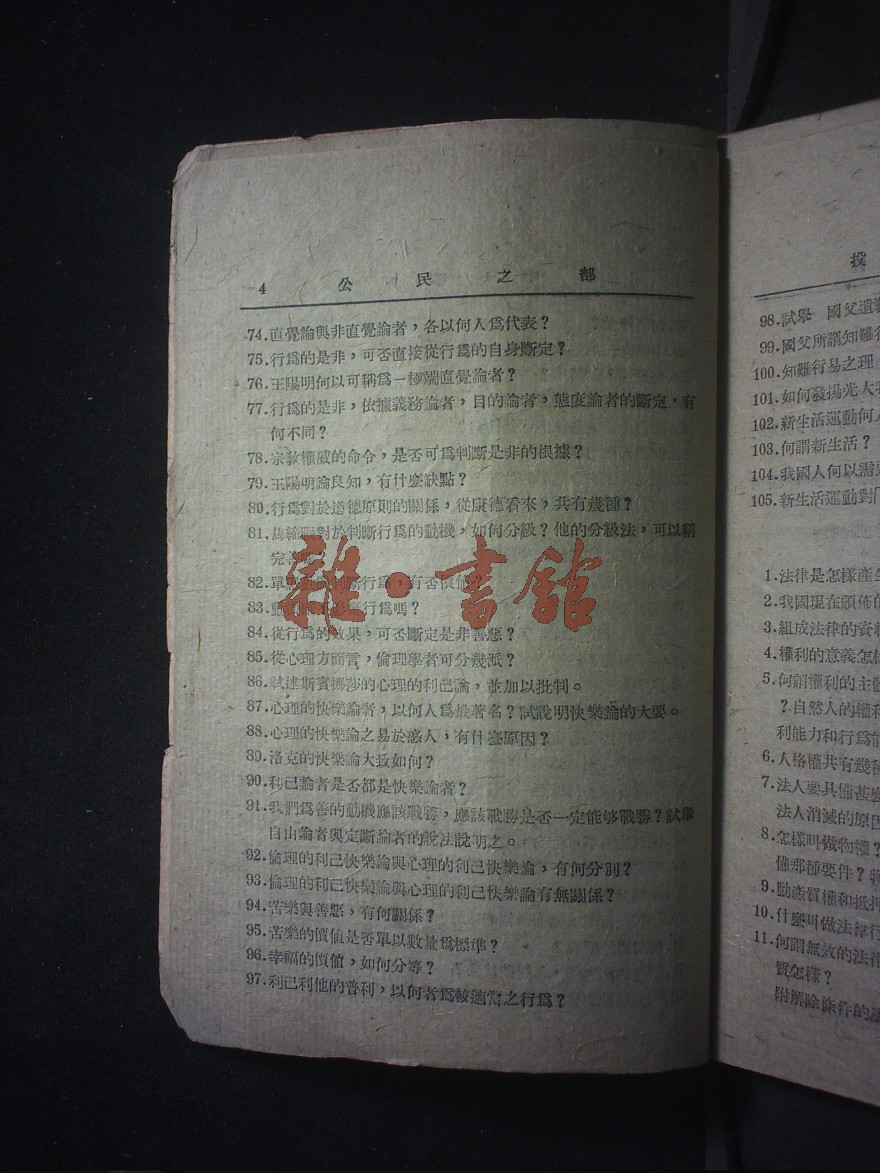 4 公民之部
74.直覺論與非直覺論者，各以何人爲代表？
75.行爲的是非，可否直接從行爲的自身斷定？
76.王陽明何以可稱爲一極端直覺論者？
77.行爲的是非，依據義務論者，目的論者，態度論者的斷定，有
何不同？
78.宗敎權威的命令，是否可爲判斷是非的根據？
79.王陽明論良知，有什麼缺點？
80.行爲對於道德原則的關係，從康德看來，共有幾種？
81.馬締耐對於判斷行爲的動機，如何分級？他的分級法，可以稱
完善
82.單 行爲，有否價值
83.動 行爲嗎？
84.從行爲的效果，可否斷定是非善惡？
85.從心理方面言，倫理學者可分幾派？
86.試述斯賓挪莎的心理的利己論，並加以批判。
87.心理的快樂論者，以何人爲最著名？試說明快樂論的大要。
88.心理的快樂論之易於惑人，有什麼原因？
89.洛克的快樂論大致如何？
90.利己論者是否都是快樂論者？
91.我們爲善的動機應該戰勝，應該戰勝是否一定能够戰勝？試舉
自由論者與定斷論者的說法說明之。
92.倫理的利己快樂論與心理的利己快樂論，有何分別？
93.倫理的利己快樂論與心理的利己快樂論有無關係？
94.苦樂與善惡，有何關係？
95.苦樂的價值是否單以數量爲標準？
96.幸福的價值，如何分等？
97.利己利他的普利，以何者爲較適當之行爲？
雜·書館
投
98.試舉 國父遺敎
99.國父所謂知難行
100.知難行易之理
101.如何發揚光大我
102.新生活運動何人
103.何謂新生活？
104.我國人何以需要
105.新生活運動對「
1.法律是怎樣產生
2.我國現在頒佈的
3.組成法律的資料
4.權利的意義怎樣
5.何謂權利的主體
？自然人的權利
利能力和行爲能
6.人格權共有幾種
7.法人要具備甚麼
法人消滅的原因
8.怎樣叫做物權？
備那種要件？物
9.動產質權和抵押
10.什麼叫做法律行
11.何謂無效的法律
質怎樣？
附解除條件的法